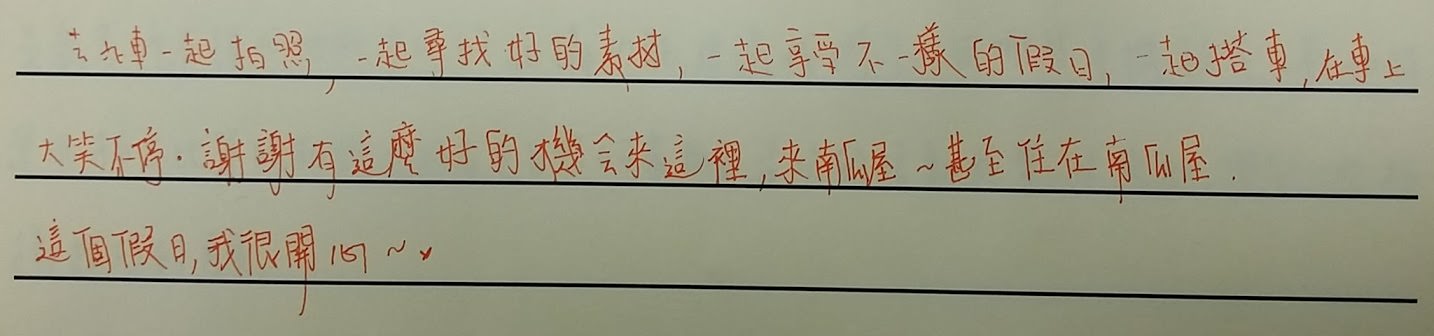 一起拍照,一起尋找好的素材,一起享受不一樣的假日,一起搭車,在車上
大笑不停.謝謝有這麼好的機会來這裡,來南瓜屋~甚至住在南瓜屋.
這個假日,我很開心~